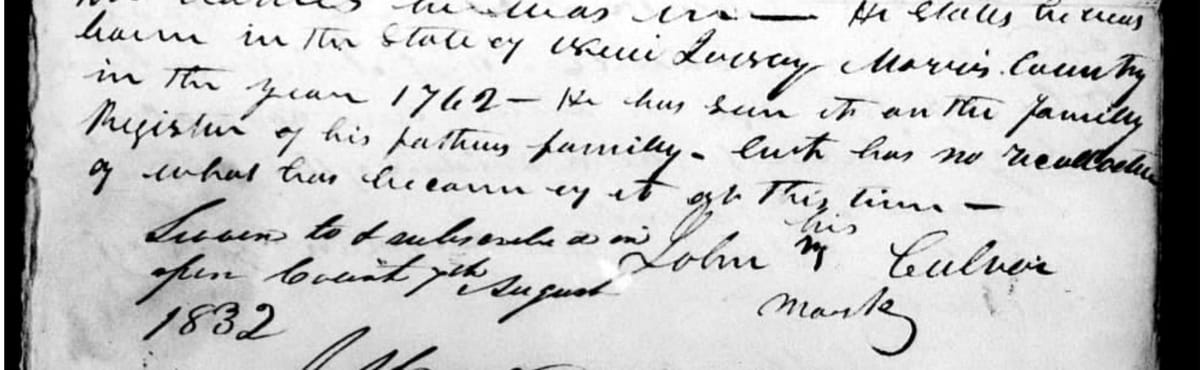 he was in — He States he was
born in the State of New Jersey Morris County
in the year 1762 — He has seen it on the family
Register of his fathers family - but has no recollection
of what has becom of it at this time —
Sworn to & subscribed in
open Court 7th August
1832
his
John M Culver
mark